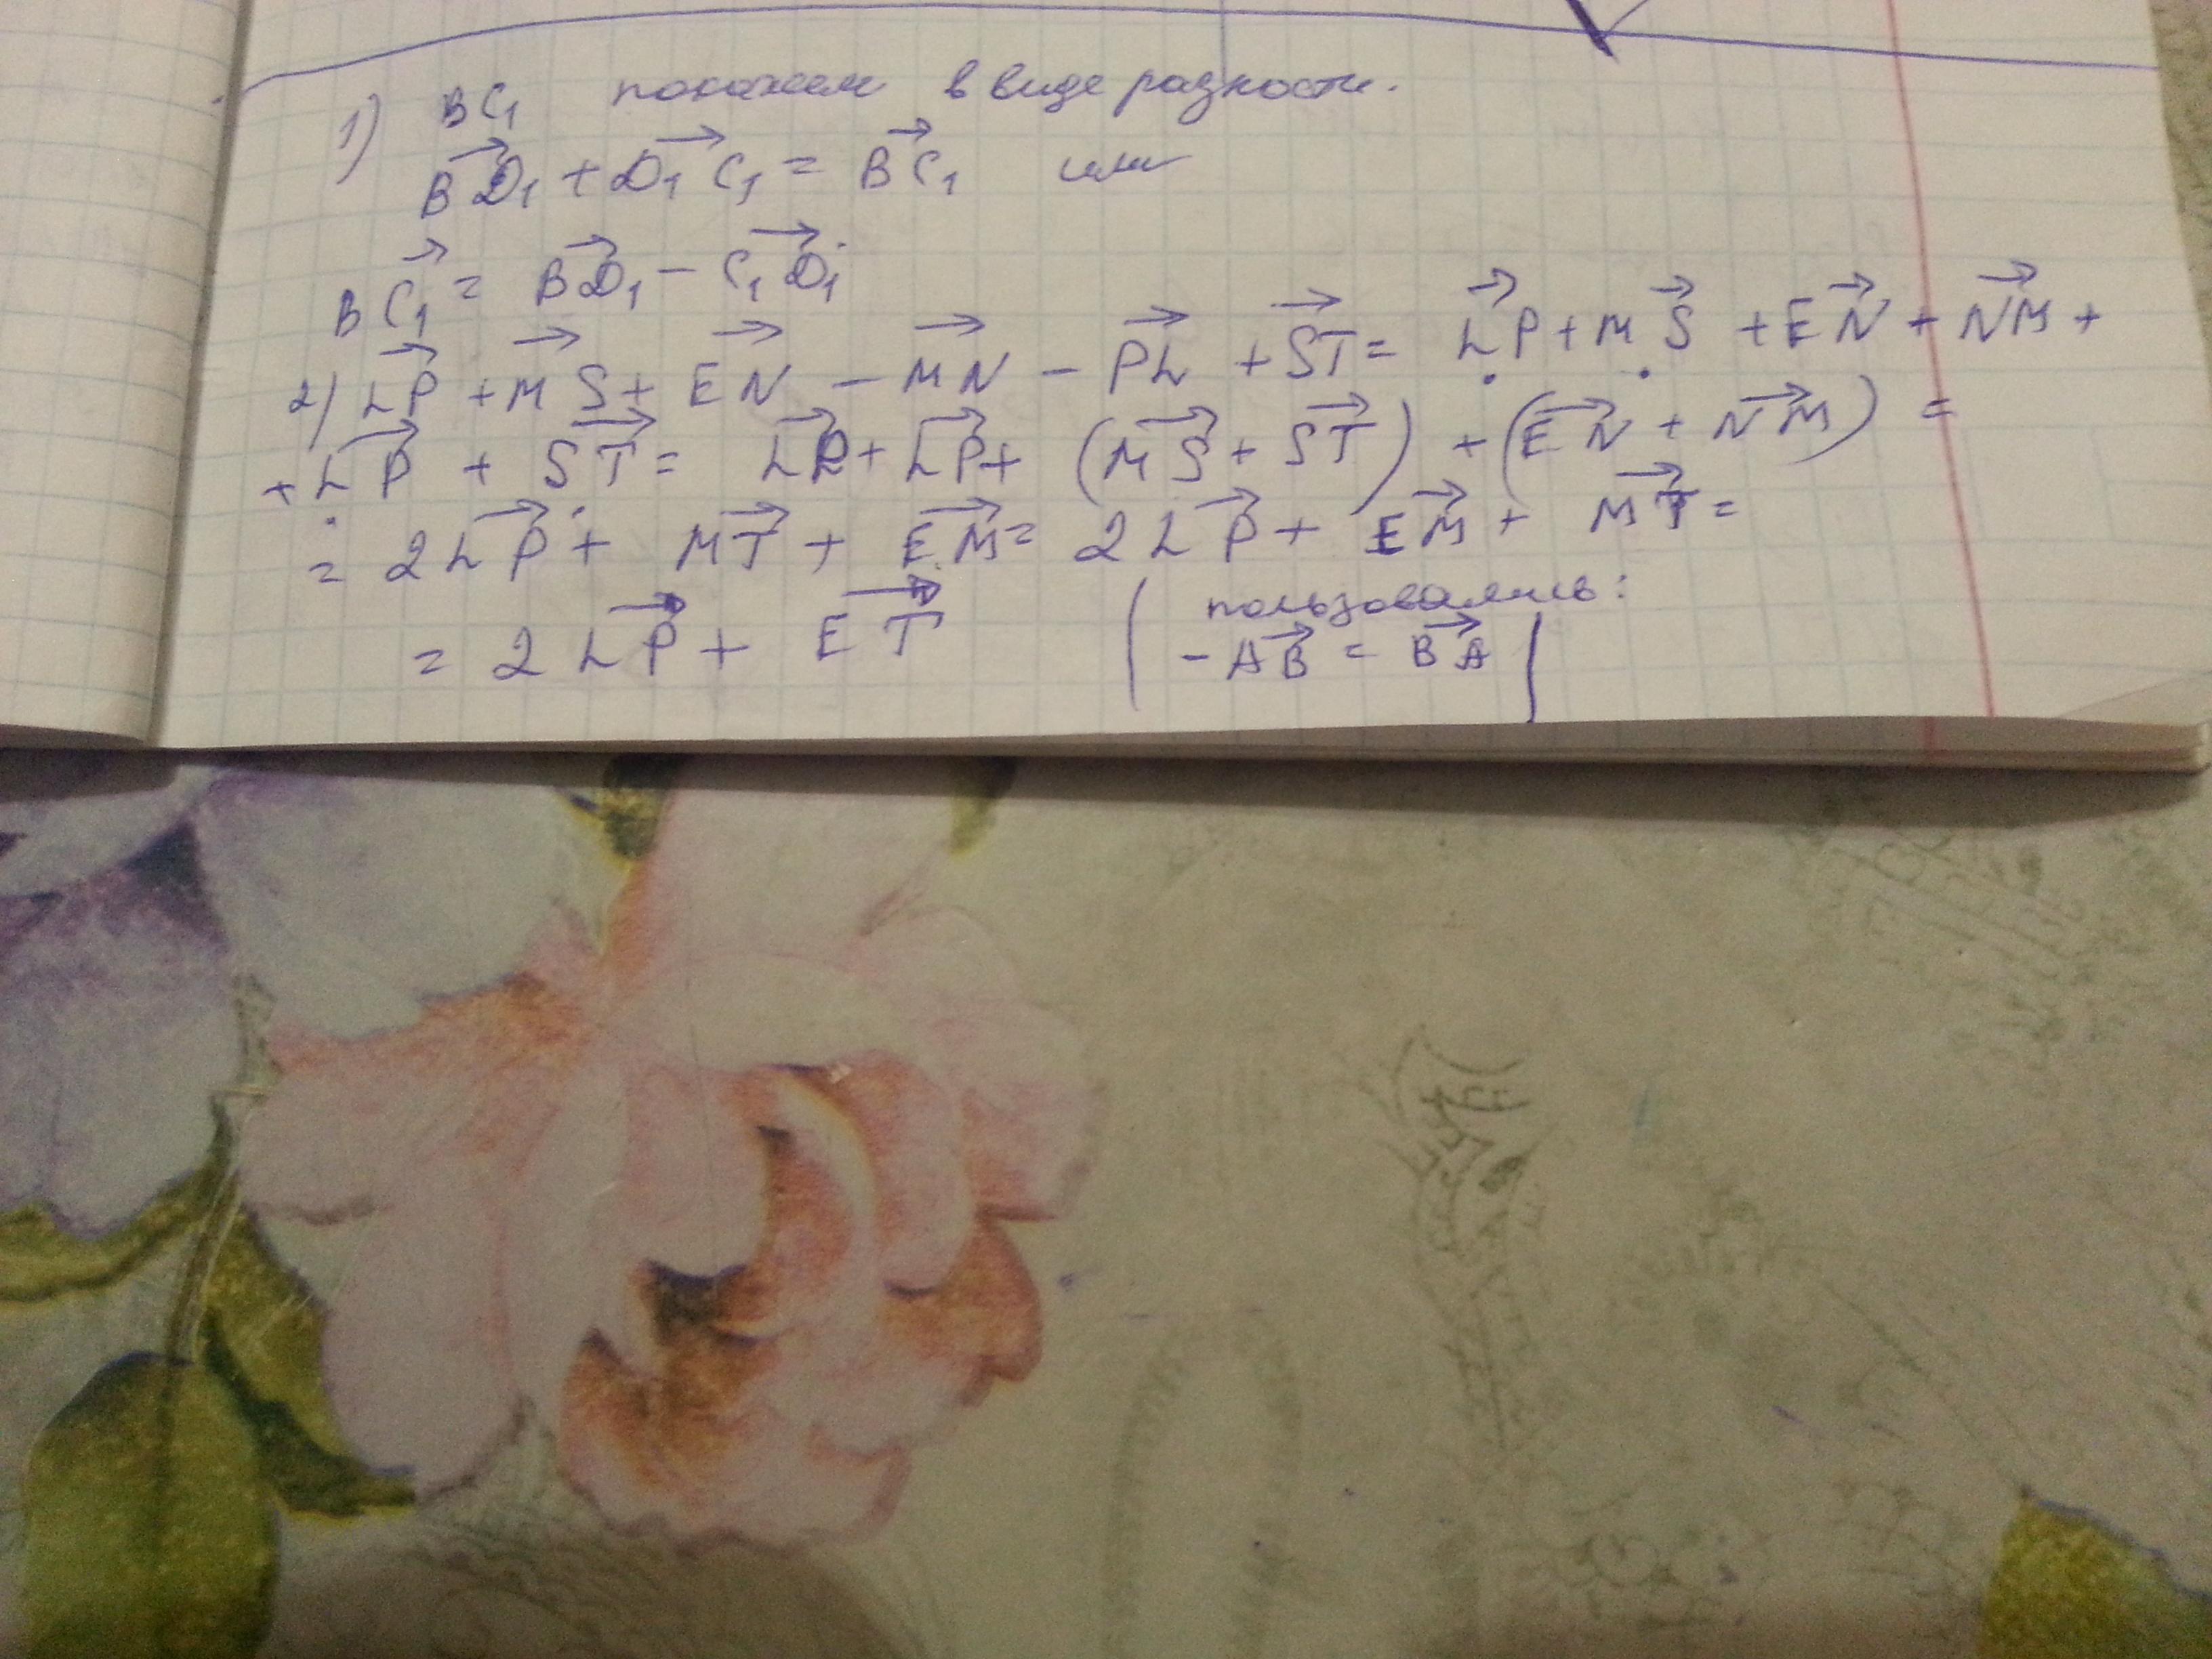 1) BC₁ покажем в виде разности.
BD₁ + D₁C₁ = BC₁ или
BC₁ = BD₁ - C₁D₁
2) LP + MS + EN - MN - PL + ST = LP + MS + EN + NM +
+ LP + ST = LP + LP + (MS + ST) + (EN + NM) =
= 2LP + MT + EM = 2LP + EM + MT =
= 2LP + ET
пользовались:
- AB = BA